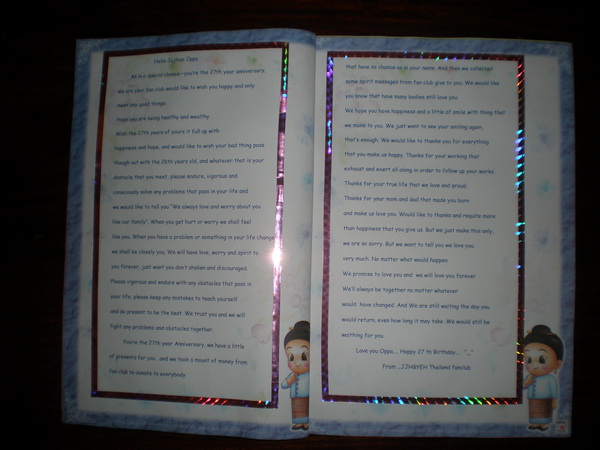 Hello Oppa
As in a special chance—you're the 27th year anniversary,
we are your fan club would like to wish you happy and only
meet any good things.
Hope you are being healthy and wealthy
Wish the 27th years of yours it full up with
happiness and hope, and would like to wish your bad thing pass
though out with the 26th years old, and whatever that is your
obstacle that you meet, please endure, vigorous and
consciously solve any problems that pass in your life and
we would like to tell you "We always love and worry about you
like our family". When you get hurt or worry we shall feel
like you. When you have a problem or something in your life change
we shall be closely you. We will have love, worry and spirit to
you forever, just want you don't shaken and discouraged.
Please vigorous and endure with any obstacles that pass in
your life, please keep any mistakes to teach yourself
and so present to be the best. We trust you and we will
fight any problems and obstacles together.
You're the 27th year Anniversary, we have a little
of presents for you and we took a mount of money from
fan club to donate to everybody
that have no chance as in your name. And then we collected
some spirit messages from fan club give to you. We would like
you know that have many bodies still love you.
We hope you have happiness and a little of smile with thing that
we make to you. We just want to see your smiling again,
that's enough. We would like to thanks you for everything
that you make us happy. Thanks for your working that
exhaust and exert all along in order to follow up your works
Thanks for your true life that we love and proud.
Thanks for your mom and dad that made you born
and make us love you. Would like to thanks and require more
than happiness that you give us. But we just make this only,
we are so sorry. But we want to tell you we love you
very much. No matter what would happen
We promise to love you and we will love you forever
We'll always be together no matter whatever
would have changed. And We are still waiting the day you
would return, even how long it may take. We would still be
waithing for you.
Love you Oppa.... Happy 27 th Birthday..
From ..JJH&YEH Thailand fanclub